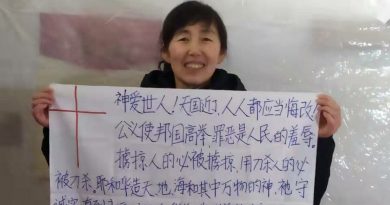 神爱世人!天国近了,人人都应当悔改
公义使邦国高举,罪恶是人民的羞辱。
掳掠人的必被掳掠,用刀杀人的必
被刀杀。耶和华造天、地、海和其中万物的神,祂守
诚实